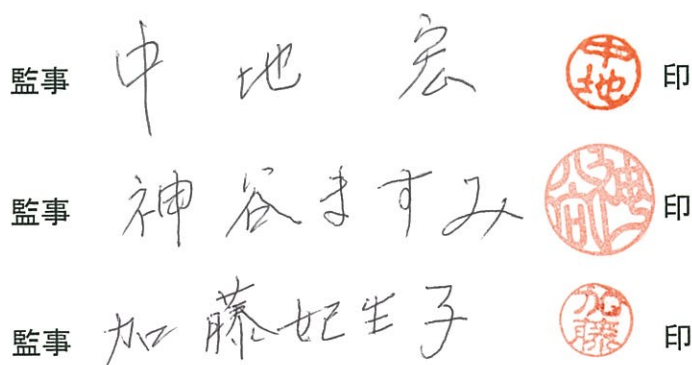 監事 中地 宏 中地 印
監事 神谷ますみ 神谷 印
監事 加藤妃生子 加藤 印